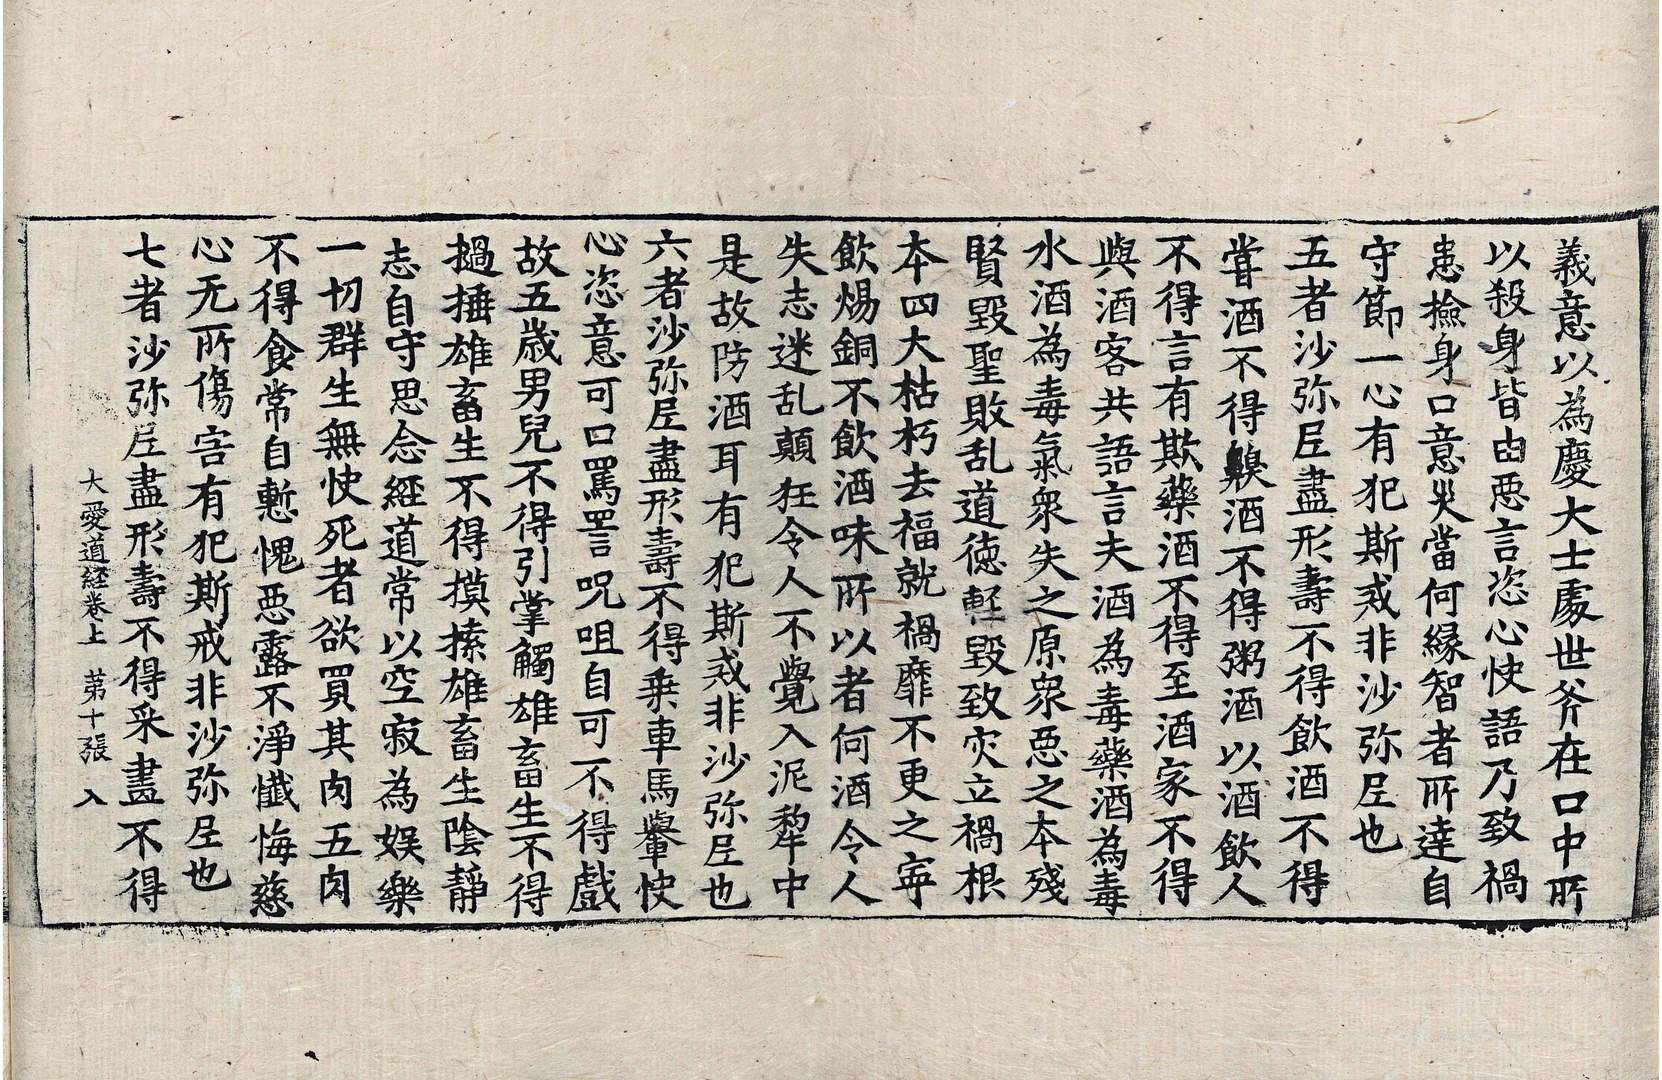 義意以為慶大士處世斧在口中所
以殺身皆由惡言恣心快語乃致禍
患撿身口意火當何縁智者所達自
守節一心有犯斯戒非沙弥尼也
五者沙弥尼盡形壽不得飲酒不得
甞酒不得鼽酒不得粥酒以酒飲人
不得言有欺藥酒不得至酒家不得
與酒客共語言夫酒為毒藥酒為毒
水酒為毒氣衆失之原衆惡之本殘
賢毀聖敗乱道徳輕毀致灾立禍根
本四大枯朽去福就禍靡不更之寧
飲煬銅不飲酒味所以者何酒令人
失志迷乱顛狂令人不覺入泥犂中
是故防酒耳有犯斯戒非沙弥尼也
六者沙弥尼盡形壽不得乗車馬轝快
心恣意可口罵詈呪咀自可不得戲
故五歳男兒不得引掌觸雄畜生不得
撾捶雄畜生不得摸捺雄畜生陰靜
志自守思念經道常以空寂為娯樂
一切群生無快死者欲買其肉五肉
不得食常自慙愧惡露不淨懺悔慈
心无所傷害有犯斯戒非沙弥尼也
七者沙弥尼盡形壽不得采畫不得
大愛道經卷上　第十張　入